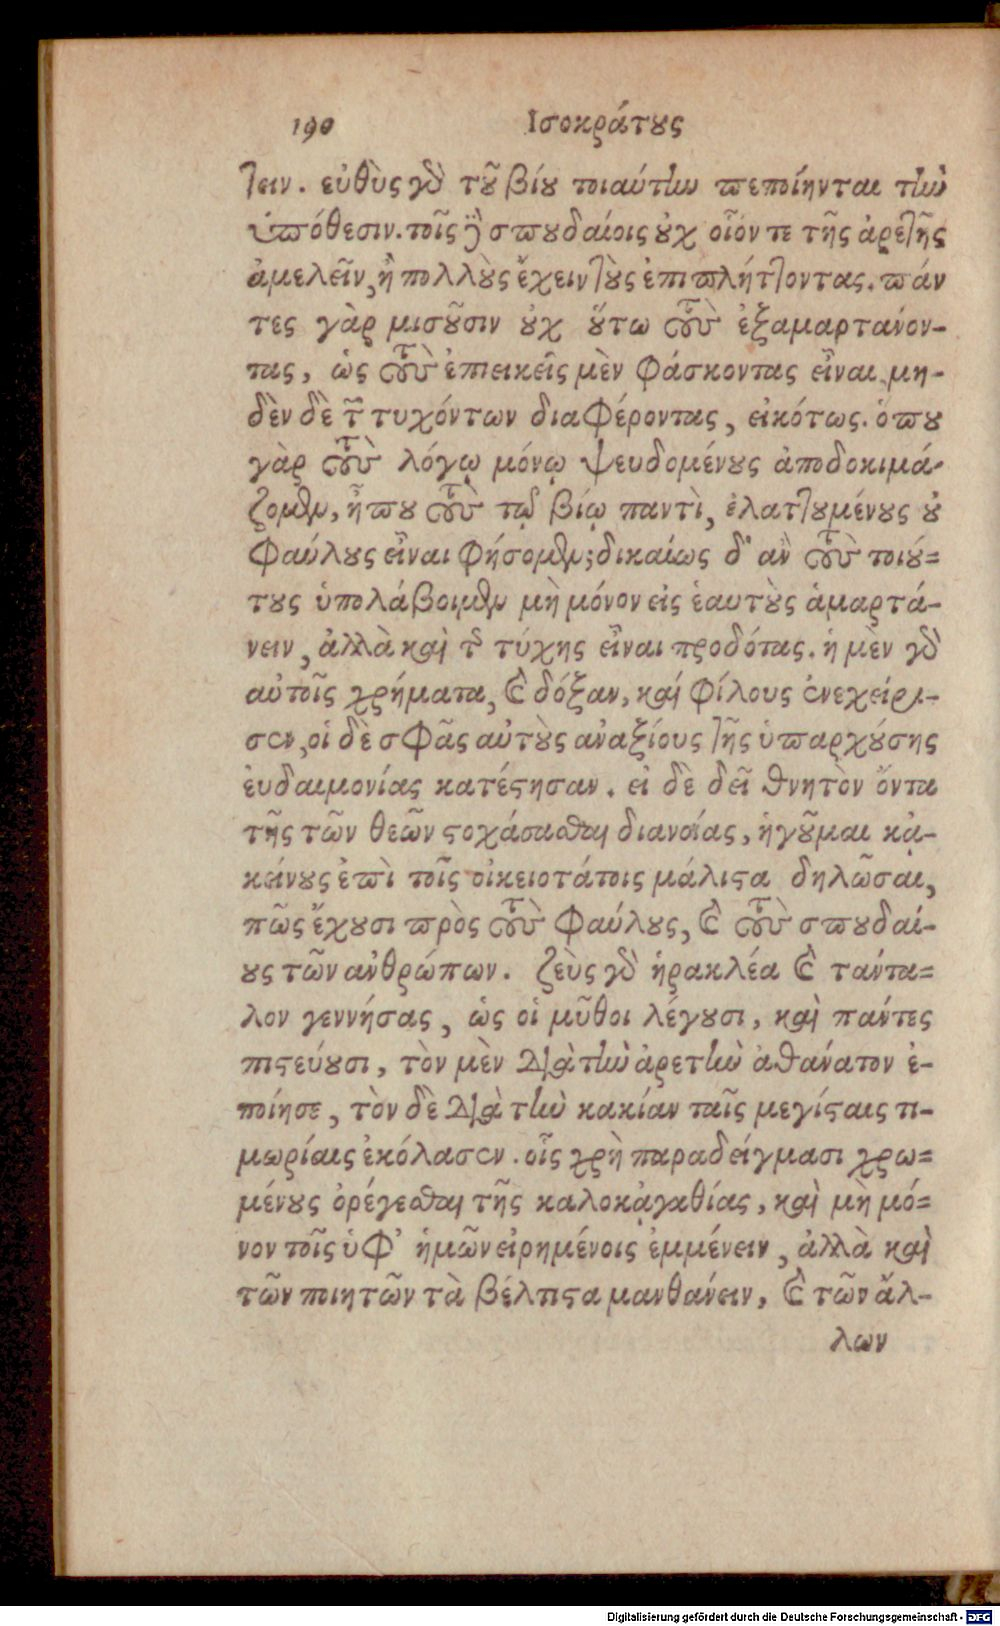 190 Ισοκράτους
τειν. εὐθὺς γὰρ τοῦ βίου τοιαύτην πεποίηνται τὴν
ὑπόθεσιν. τοῖς δὲ σπουδαίοις οὐχ οἷόν τε τῆς ἀρετῆς
ἀμελεῖν, ἢ πολλοὺς ἔχειν τοὺς ἐπιπλήττοντας. πάν
τες γὰρ μισοῦσιν οὐχ οὕτω τοὺς ἐξαμαρτάνον-
τας, ὡς τοὺς ἐπιεικεῖς μὲν φάσκοντας εἶναι, μη-
δὲν δὲ τῶν τυχόντων διαφέροντας, εἰκότως. ὁπου
γὰρ τοὺς λόγῳ μόνῳ ψευδομένους ἀποδοκιμά-
ζομεν, ἦπου τοὺς τῷ βίῳ παντὶ, ἐλαττουμένους οὐ
φαύλους εἶναι φήσομεν; δικαίως δ' ἂν τοὺς τοιού-
τους ὑπολάβοιμεν μὴ μόνον εἰς ἑαυτοὺς ἁμαρτά-
νειν, ἀλλὰ καὶ τῆς τύχης εἶναι προδότας. ἡ μὲν γὰρ
αὐτοῖς χρήματα, καὶ δόξαν, καὶ φίλους ἐνεχείρι-
σεν, οἱ δὲ σφᾶς αὐτοὺς ἀναξίους τῆς ὑπαρχούσης
ἐυδαιμονίας κατέστησαν. εἰ δὲ δεῖ θνητὸν ὄντα
τῆς τῶν θεῶν στοχάσασθαι διανοίας, ἡγοῦμαι κᾀ-
κείνους ἐπὶ τοῖς οἰκειοτάτοις μάλιστα δηλῶσαι,
πῶς ἔχουσι πρὸς τοὺς φαύλους, καὶ τοὺς σπουδαί-
ους τῶν ἀνθρώπων. ζεὺς γὰρ ἡρακλέα καὶ τάντα-
λον γεννήσας, ὡς οἱ μῦθοι λέγουσι, καὶ πάντες
πιστεύουσι, τὸν μὲν διὰ τὴν ἀρετὴν ἀθάνατον ἐ-
ποίησε, τὸν δὲ διὰ τὴν κακίαν ταῖς μεγίσταις τι-
μωρίαις ἐκόλασεν. οἷς χρὴ παραδείγμασι χρω-
μένους ὀρέγεσθαι τῆς καλοκᾀγαθίας, καὶ μὴ μό-
νον τοῖς ὑφ' ἡμῶν εἰρημένοις ἐμμένειν, ἀλλὰ καὶ
τῶν ποιητῶν τὰ βέλτιστα μανθάνειν, καὶ τῶν ἄλ-
λων
Digitalisierung gefördert durch die Deutsche Forschungsgemeinschaft - DFG